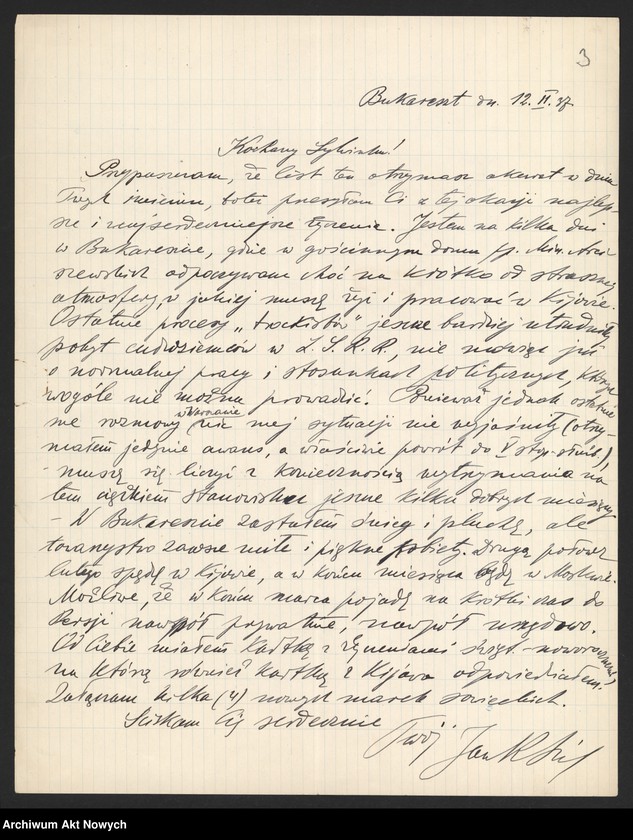 3
Bukareszt dn. 12.II.37.
Kochany Sylwinku!
Przypuszczam, że list ten otrzymasz akurat w dniu
Twych imienin, toteż przesyłam Ci z tej okazji najlep-
sze i najserdeczniejsze życzenia. Jestem na kilka dni
w Bukareszcie, gdzie w gościnnym domu pp. Min. Arci
szewskich odpoczywam choć na krótko od strasznej
atmosfery, w jakiej muszę żyć i pracować w Kijowie.
Ostatnie procesy „trockistów" jeszcze bardziej utrudniły
pobyt cudzoziemców w Z.S.R.R., nie mówiąc już
o normalnej pracy i stosunkach politycznych, których
wogóle nie można prowadzić. Ponieważ jednak ostat
nie rozmowy w Warszawie nic mej sytuacji nie wyjaśniły (otrzy-
małem jedynie awans, a właściwie powrót do V stop. służb.),
muszę się liczyć z koniecznością wytrzymania na
tem ciężkiem stanowisku jeszcze kilka dobrych miesięcy
- W Bukareszcie zastałem śnieg i pluchę, ale
towarzystwo zawsze miłe i piękne kobiety. Drugą połowę
lutego spędzę w Kijowie, a w końcu miesiąca będę w Moskwie.
Możliwe, że w końcu marca pojadę na krótki czas do
Persji nawpół prywatnie, nawpół urzędowo.
Od Ciebie miałem kartkę z życzeniami noworocznemi,
na którą również kartką z Kijowa odpowiedziałem.
Załączam kilka (4) nowych marek sowieckich.
Ściskam Cię serdecznie
Twój Jan
Archiwum Akt Nowych